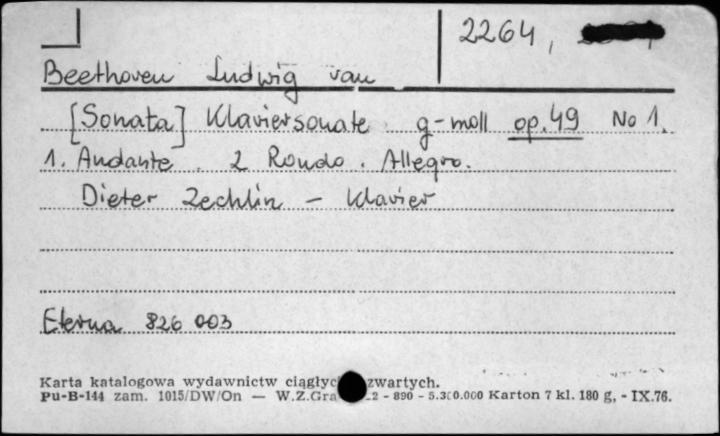 2264,
Beethoven Ludwig van
[Sonata] Klaviersonate g-moll op. 49 No 1.
1. Andante. 2 Rondo. Allegro.
Dieter Zechlin – Klavier
Eterna 826 003
Karta katalogowa wydawnictw zwartych.
Pu-B-144 zam. 1015/DW/On — - 890 - Karton 7 kl. 180 g, - IX.76.